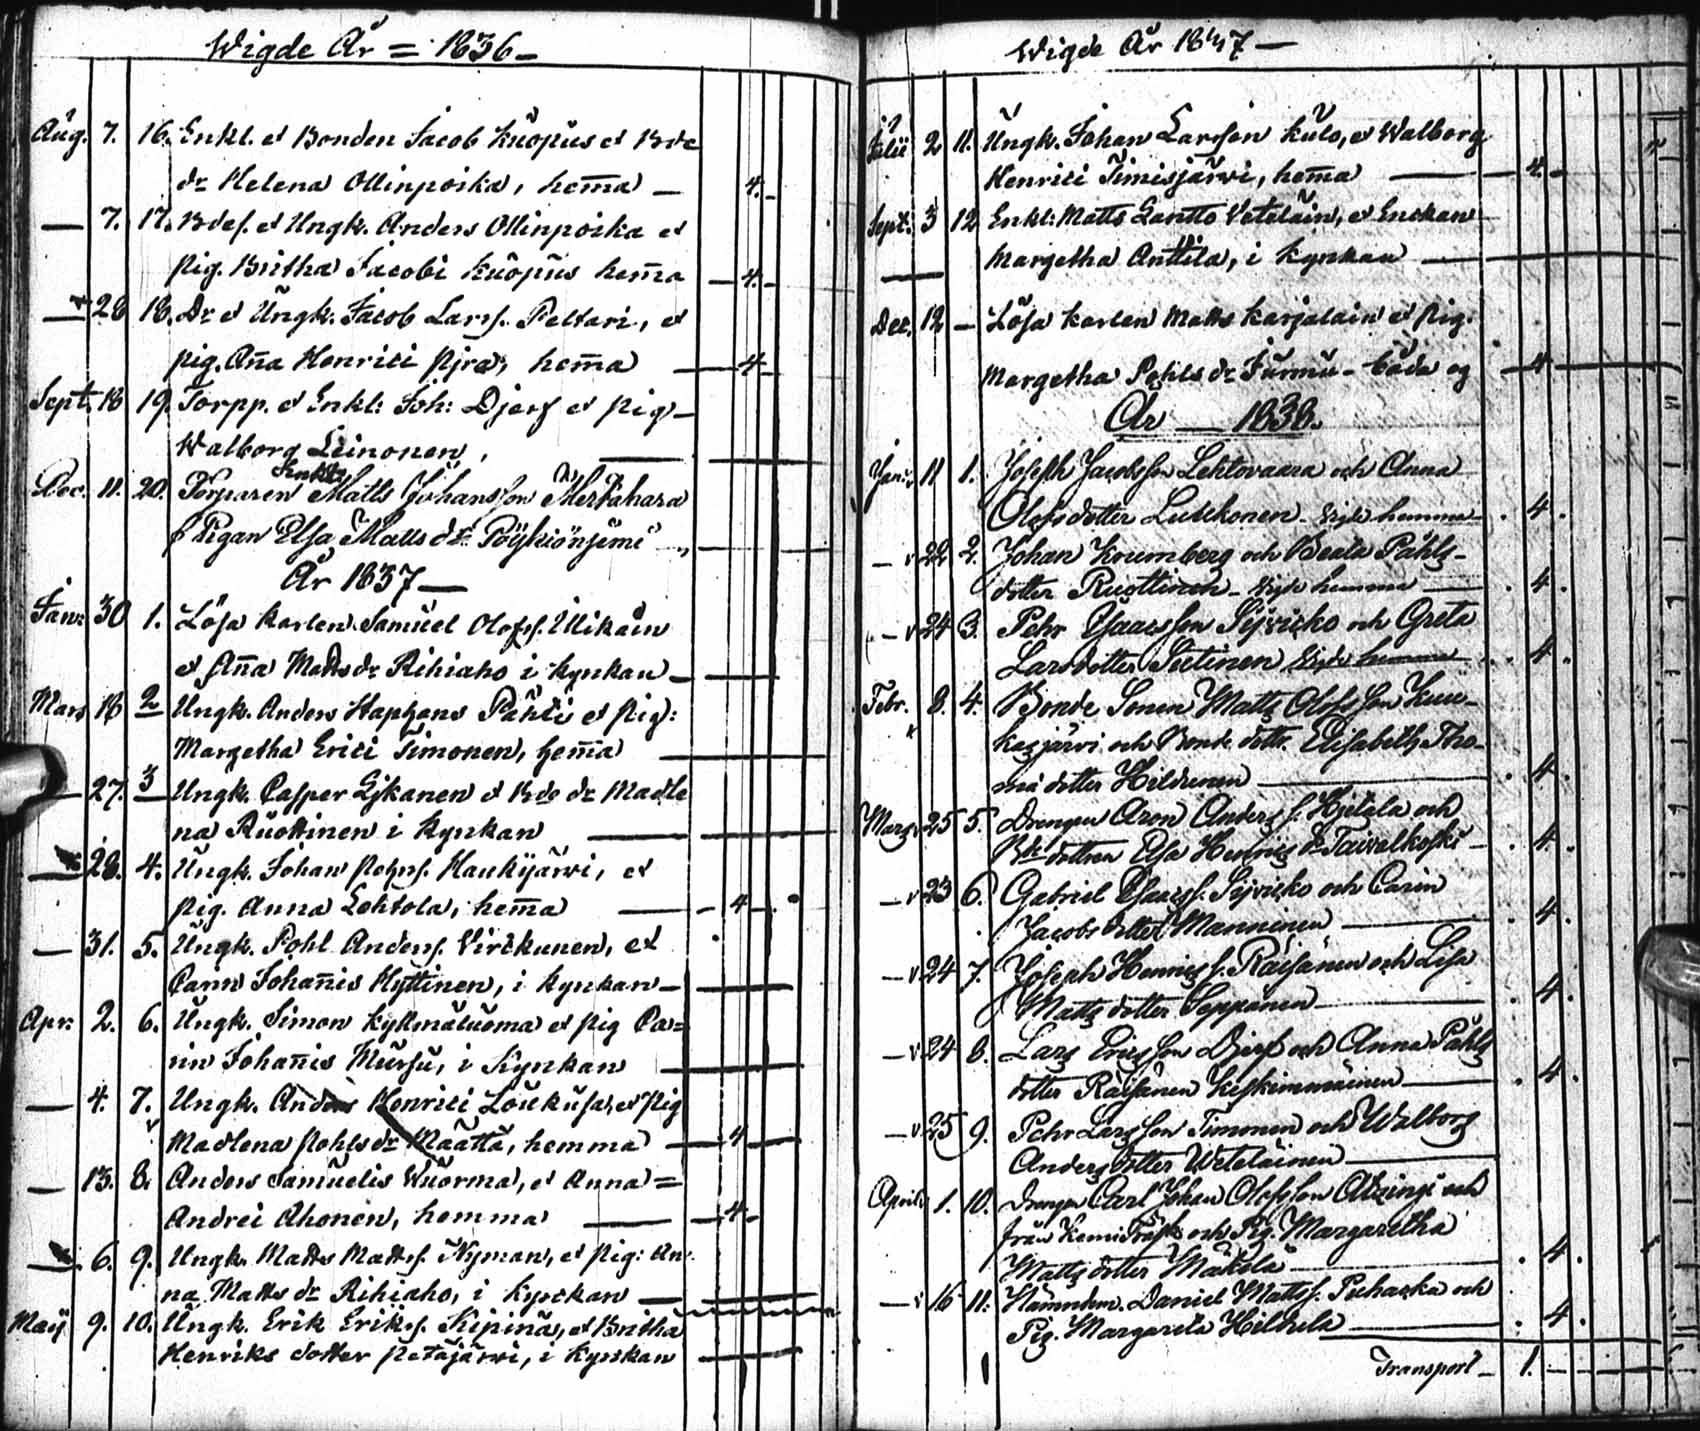 Wigde År = 1836 -
Aug. 7. 16. Enkl. et Bonden Jacob Kuopus et Bde
dr Helena Ollinpoika, hem̄a — 4. -
— 7. 17. Bdes. et Ungk. Anders Ollinpoika et
pig. Britha Jacobi Kuopus hem̄a — 4. -
— 28 18. Dr et Ungk. Jacob Larss. Peltari, et
pig. An̄a Henrici Pjra, hem̄a — 4 -
Sept. 18 19. Torpp. et Enkl: Joh: Djerf et pig -
Walborg Leinonen, —
Dec. 11. 20. Torparen Enkl. Matts Johansson
Pigan Elsa Matts dr —
År 1837 —
Jan: 30 1. Lösa karlen Samuel Olofss. Ulikain
et An̄a Matts dr Rihiaho i kyrkan —
Mars 18 2 Ungk. Anders Staphans Påhti et pig:
Margetha Erici Timonen, hem̄a —
— 27. 3 Ungk. Casper Lykanen et Bde dr Madle
na Ruottinen i kyrkan —
— 28. 4. Ungk. Johan Pehrss. Haukijärwi, et
pig. Anna Lehtola, hem̄a — 4 -
— 31. 5. Ungk. Pohl Anderss. Virckunen, et
Carin Johan̄is Hyttinen, i kyrkan —
Apr: 2. 6. Ungk. Simon Kyllmäluoma et pig Ca=
rin Johan̄is Mursu, i Kyrkan —
— 4. 7. Ungk. Anders Henrici Loukusa, et pig
Madlena Pohls dr Määttä, hemma — 4 —
— 13. 8. Anders Samuelis Wuorma, et Anna =
Andrei Ahonen, hemma — 4 -
— 6. 9. Ungk. Matts Mattss. Nyman, et pig: An
na Matts dr Rihiaho, i kyrckan —
Maij 9. 10. Ungk. Erik Eriks. Kipinä, et Britha
Henriks dotter Petäjärwi, i kyrckan —
Wigde År 1837 —
Julii 2 11. Ungk. Johan Larsson Kulo, et Walborg
Henrici Timisjärwi, hem̄a — 4. -
Sept. 3 12 Enkl: Matts Lantto Vetelain, et Enckan
— Margetha Anttila, i kyrkan —
Dec. 12 — Lösa karlen Matts Karjalain et pig.
Margetha Pohls dr Jurmu - båda og — 4
År — 1838.
Jan: 11 1. Joseph Jacobsson Lehtovaara och Anna
Olofsdotter Lutikonen - Vigde hemma - 4.
— 22 2. Johan Krumberg och Beata Påhls-
dotter Ruottinen - Vigde hemma — 4.
— 24 3. Pehr Isaacsson Sijvicko och Greta
Larsdotter Seetinen Vigde hemma — 4.
Febr. 8. 4. Bonde Sonen Matts Olofsson Kuu-
kasjärvi och Bonde dott. Elisabeth Tho-
mä dotter Hildunen — 4.
Mars 25 5. Drengen Aron Anders s. Hjelala och
dottren Elsa Henrics dr Taivalkoski - 4.
— 23 6. Gabriel Isaacss. Sijvicko och Carin
Jacobs dotter Manninen — 4.
— 24 7. Joseph Henrics s. Räisänen och Lisa
Matts dotter Seppänen — 4.
— 24 8. Lars Ericsson Djerf och Anna Påhls
dotter Räisänen Keskimmäinen — 4.
— 25 9. Pehr Larsson Timonen och Walborg
Anders dotter Weteläinen —
Aprilis 1. 10. Drengen Carl Johan Olofsson
från Kemi Träsk och Pig. Margaretha
Matts dotter Mäkelä — 4.
— 16 11. Nämndem. Daniel Mattss. Puhacka och
Pig. Margareta Hilhela — 4.
Transport — 1. —